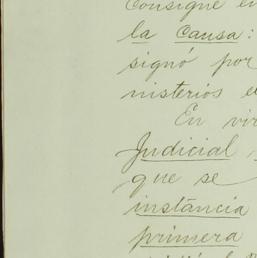 Consigne en
la causa:
signó por
nisterios e
En vir
Judicial
que se
instancia
primera